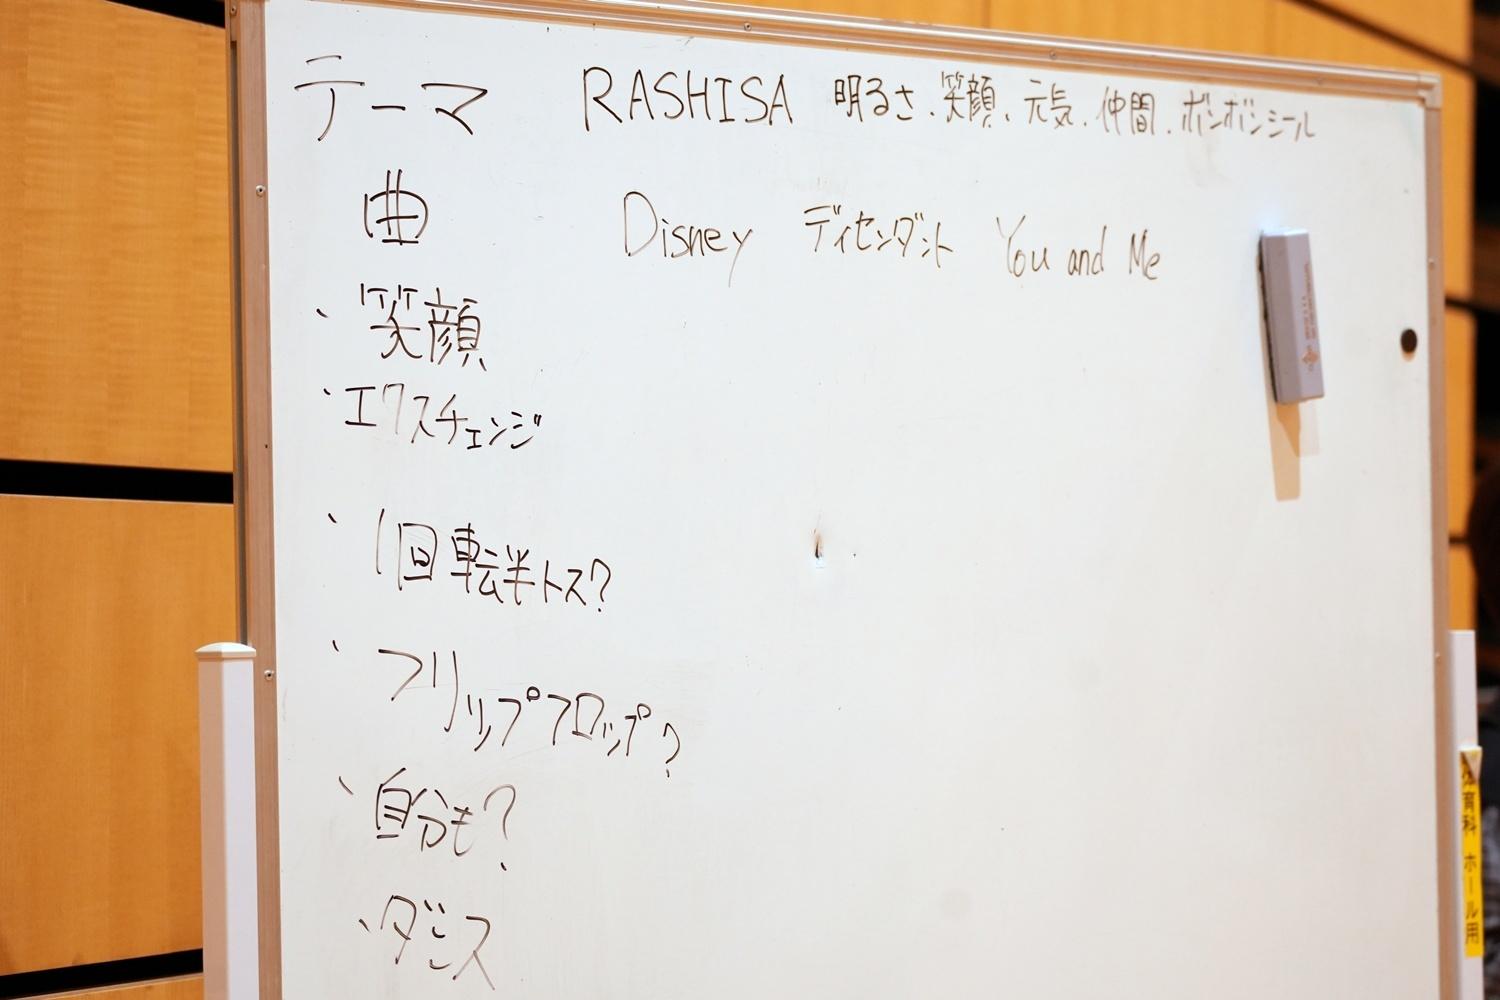 テーマ RASHISA 明るさ、笑顔、元気、仲間、ボンボンシール
曲 Disney ディセンダント You and Me
、笑顔
、エクスチェンジ
、1回転半トス?
、フリップフロップ?
、自分も?
、ダンス
体育科 ホール用